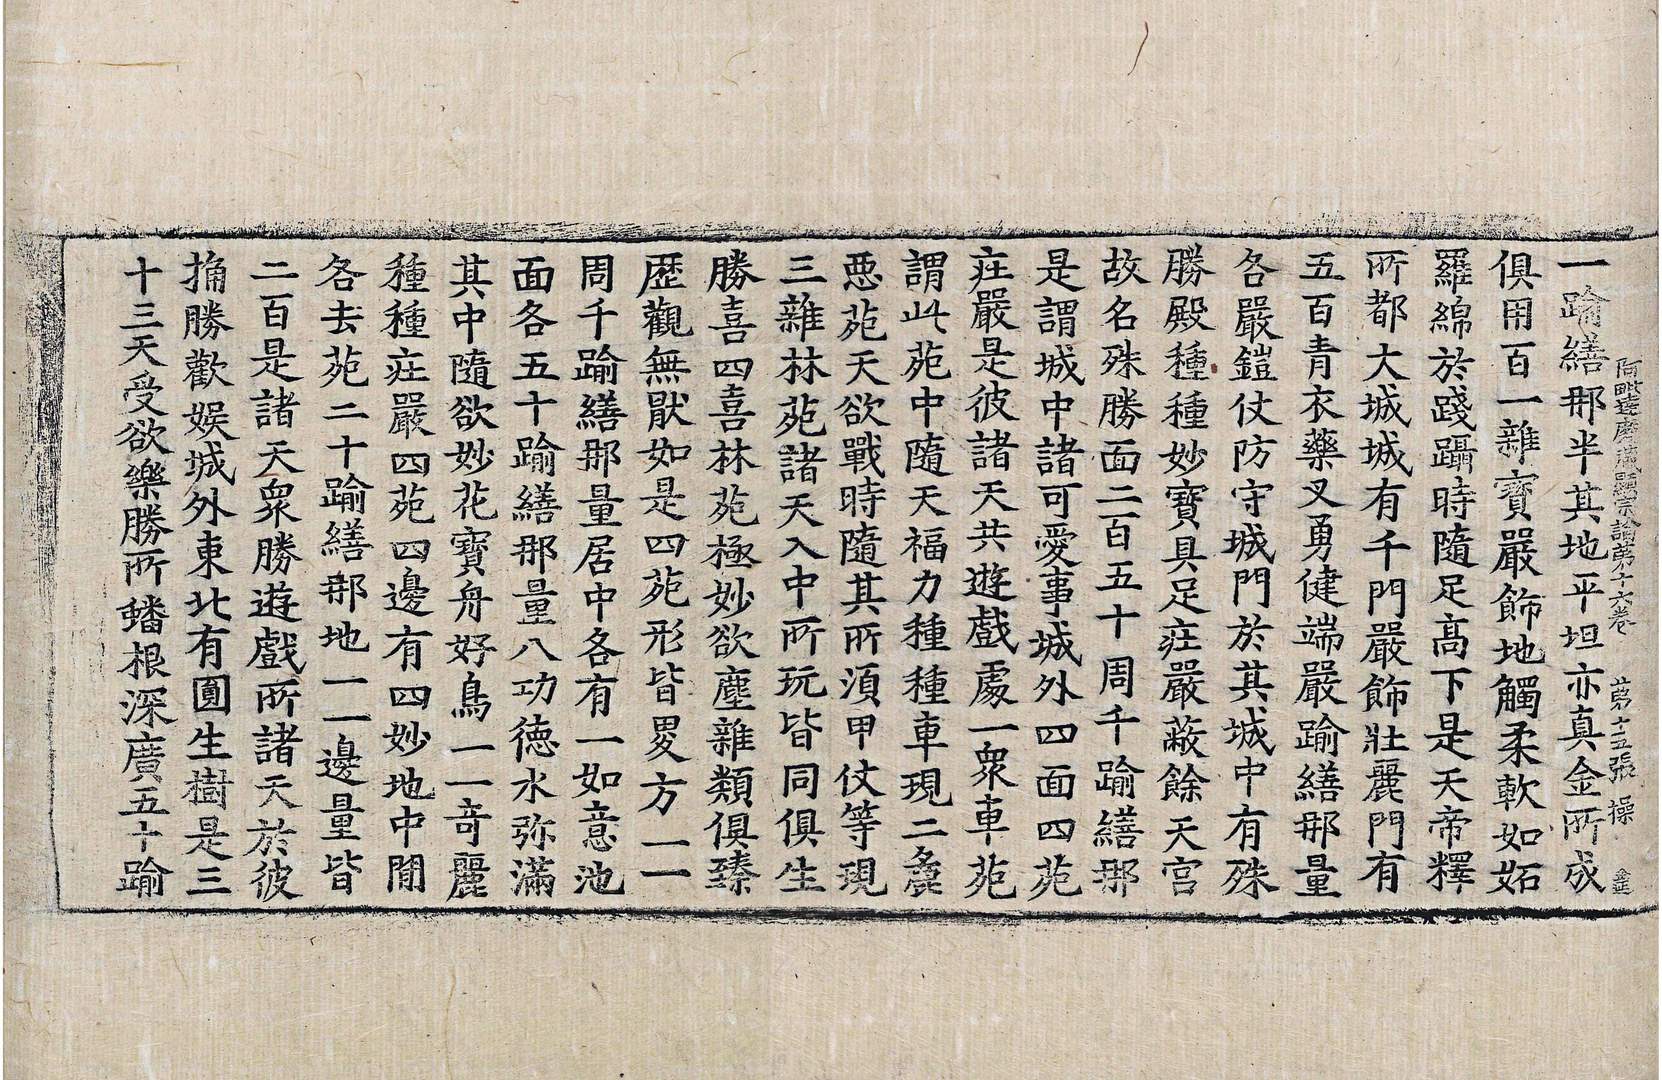 阿毗達磨藏顯宗論第十六卷 第十五張 操
一踰繕那半其地平坦亦真金所成
俱用百一雜寳嚴飾地觸柔軟如妬
羅綿於踐躡時隨足高下是天帝釋
所都大城城有千門嚴飾壯麗門有
五百青衣藥叉勇健端嚴踰繕那量
各嚴鎧仗防守城門於其城中有殊
勝殿種種妙寳具足莊嚴蔽餘天宮
故名殊勝面二百五十周千踰繕那
是謂城中諸可愛事城外四面四苑
莊嚴是彼諸天共遊戲處一衆車苑
謂此苑中隨天福力種種車現二麁
惡苑天欲戰時隨其所須甲仗等現
三雜林苑諸天入中所玩皆同俱生
勝喜四喜林苑極妙欲塵雜類俱臻
歷觀無猒如是四苑形皆畟方一一
周千踰繕那量居中各有一如意池
面各五十踰繕那量八功德水弥滿
其中隨欲妙花寳舟好鳥一一奇麗
種種莊嚴四苑四邊有四妙地中閒
各去苑二十踰繕那地一一邊量皆
二百是諸天衆勝遊戲所諸天於彼
捔勝歡娛城外東北有圓生樹是三
十三天受欲樂勝所蟠根深廣五十踰